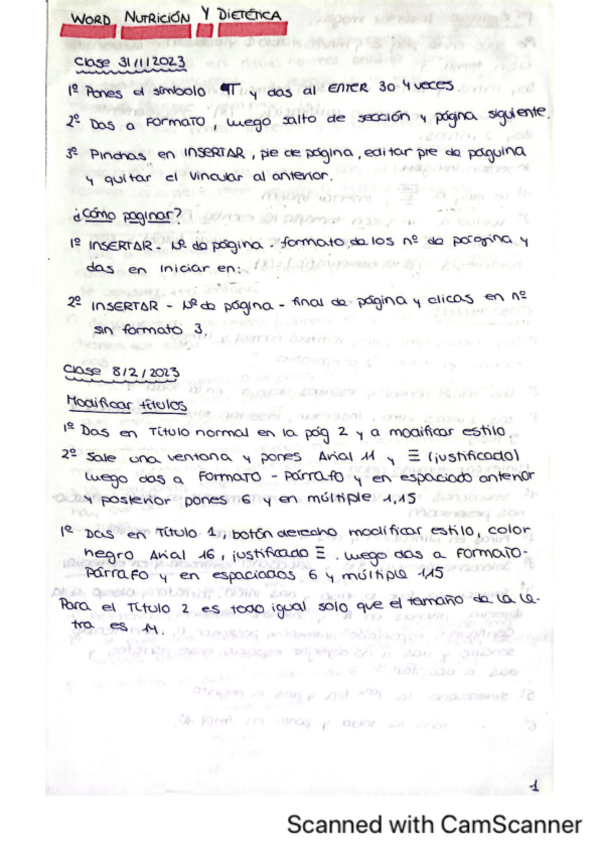 WORD NUTRICIÓN Y DIETÉTICA
Clase 31/1/2023
1º Pones el símbolo ¶ y das al ENTER 3 o 4 veces.
2º Das a FORMATO, luego salto de sección y página siguiente.
3º Pinchas en INSERTAR, pie de página, editar pie de página
y quitar el vincular al anterior.
¿Cómo paginar?
1º INSERTAR - Nº de página - formato de los nº de página y
das en iniciar en:
2º INSERTAR - Nº de página - final de página y clicas en nº
sin formato 3.
Clase 8/2/2023
Modificar títulos
1º Das en Título normal en la pág 2 y a modificar estilo
2º Sale una ventana y pones Arial 11 y ≡ (justificado)
luego das a FORMATO - PÁRRAFO y en espaciado anterior
y posterior pones 6 y en múltiple 1,15
1º Das en Título 1, botón derecho modificar estilo, color
negro Arial 16, justificado ≡. luego das a FORMATO-
PÁRRAFO y en espaciados 6 y múltiple 1,15
Para el Título 2 es todo igual solo que el tamaño de la le-
tra es 14.
1
Scanned with CamScanner